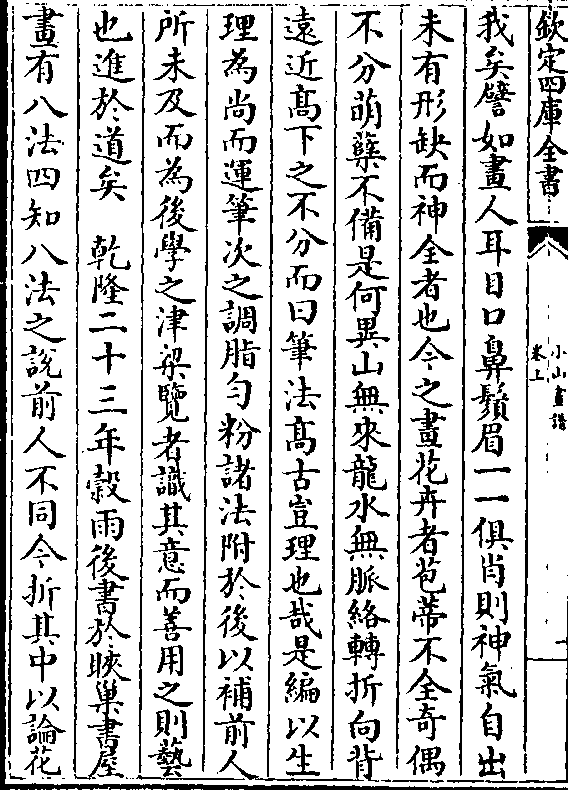 欽定四庫全書
小山畫譜
卷上
一
我矣譬如畫人耳目口鼻鬚眉一一俱肖則神氣自出
未有形缺而神全者也今之畫花卉者苞蒂不全奇偶
不分萌蘖不備是何異山無來龍水無脈絡轉折向背
遠近髙下之不分而曰筆法髙古豈理也哉是編以生
理為尚而運筆次之調脂勻粉諸法附於後以補前人
所未及而為後學之津梁覽者識其意而善用之則藝
也進於道矣　乾隆二十三年穀雨後書於䀹巢書屋
畫有八法四知八法之説前人不同今折其中以論花